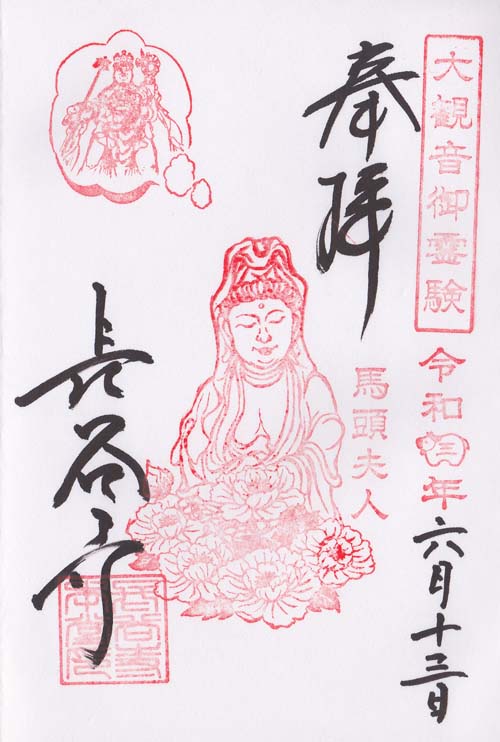 大観音御霊験
令和
年
六月十三日
奉拝
馬頭夫人
長谷寺